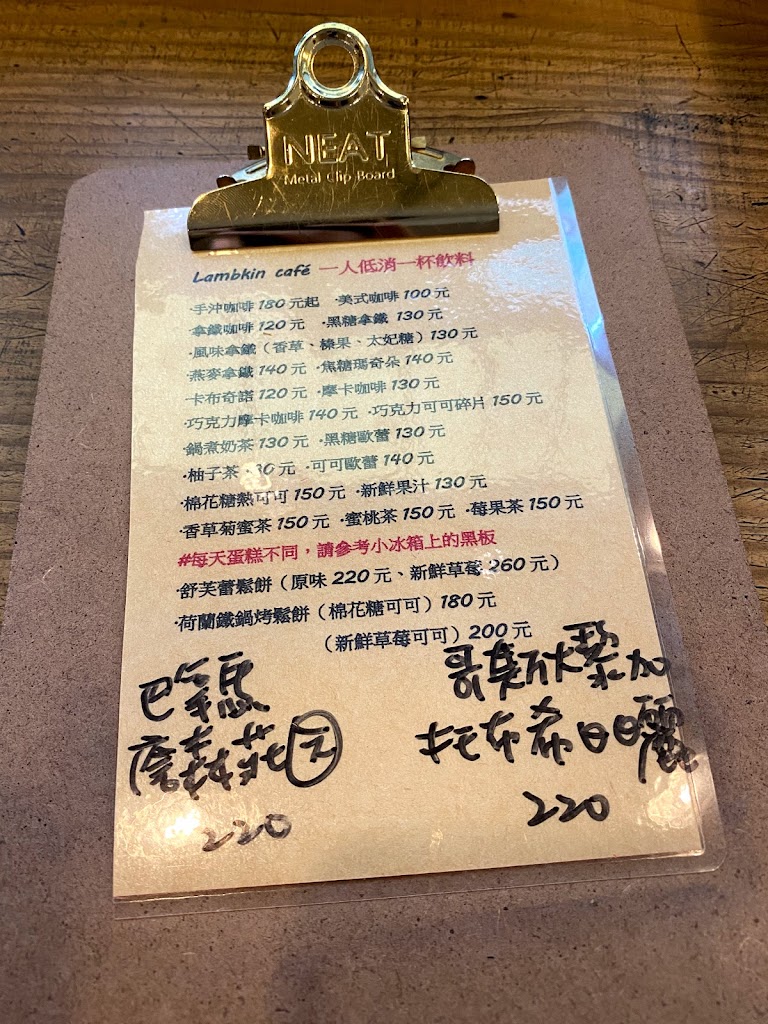 NEAT
Metal Clip Board
Lambkin café 一人低消一杯飲料
·手沖咖啡 180 元起 ·美式咖啡 100 元
·拿鐵咖啡 120 元 ·黑糖拿鐵 130 元
·風味拿鐵（香草、榛果、太妃糖）130 元
·燕麥拿鐵 140 元 ·焦糖瑪奇朵 140 元
·卡布奇諾 120 元 ·摩卡咖啡 130 元
·巧克力摩卡咖啡 140 元 ·巧克力可可碎片 150 元
·鍋煮奶茶 130 元 ·黑糖歐蕾 130 元
·柚子茶 30 元 ·可可歐蕾 140 元
·棉花糖熱可可 150 元 ·新鮮果汁 130 元
·香草菊蜜茶 150 元 ·蜜桃茶 150 元 ·莓果茶 150 元
#每天蛋糕不同，請參考小冰箱上的黑板
·舒芙蕾鬆餅（原味 220 元、新鮮草莓 260 元）
·荷蘭鐵鍋烤鬆餅（棉花糖可可）180 元
（新鮮草莓可可）200 元
巴拿馬
220
哥斯大黎加
220